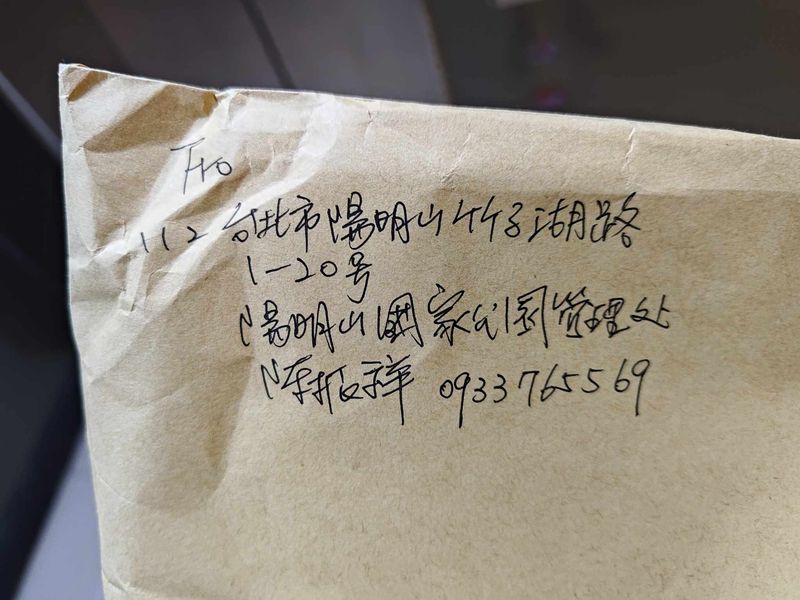 Fro
112 台北市陽明山竹子湖路
1-20号
陽明山國家公園管理处
陳 0933765569